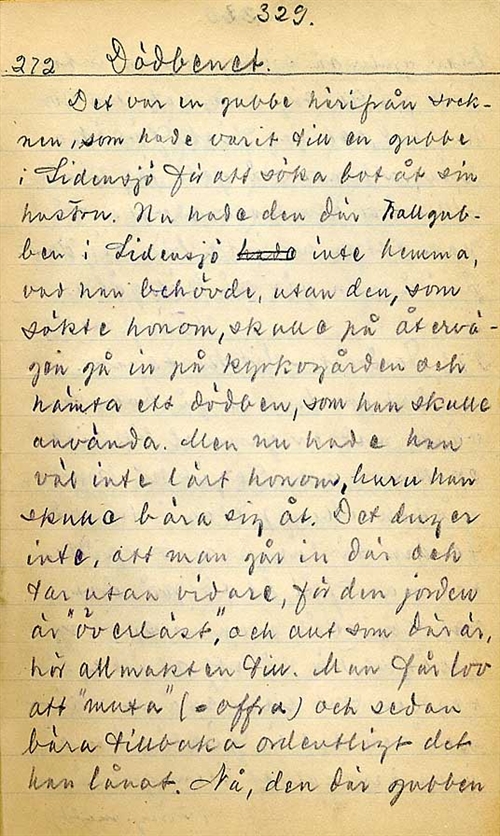 329.
272 Dödbenet.
Det var en gubbe härifrån sock-
nen, som hade varit till en gubbe
i Lidensjö för att söka bot åt sin
hustru. Nu hade den där Trallgub-
ben i Lidensjö hade inte hemma,
vad han behövde, utan den, som
sökte honom, skulle på återvä-
gen gå in på kyrkogården och
hämta ett dödben, som han skulle
använda. Men nu hade han
väl inte lärt honom, huru han
skulle bära sig åt. Det duger
inte, att man går in där och
tar utan vidare, för den jorden
är "överläst", och allt som där är,
hör allmakten till. Man får lov
att "muta" (= offra) och sedan
bära tillbaka ordentligt det
han lånat. Nå, den där gubben